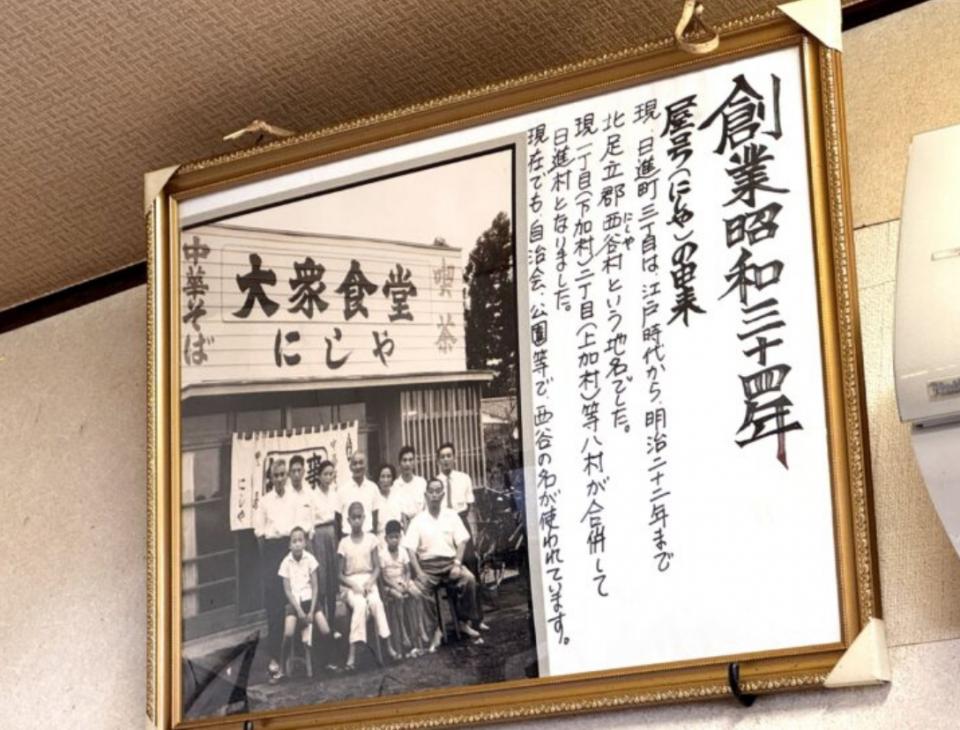 創業昭和三十四年
屋号(にしや)の由来
現、日進町三丁目は、江戸時代から、明治二十二年まで
北足立郡西谷村という地名でした。
にしや
現一丁目(下加村)二丁目(上加村)等八村が合併して
日進村となりました。
現在でも、自治会、公園等で、西谷の名が使われています。
喫茶
大衆食堂
にしや
中華そば
衆
にしや